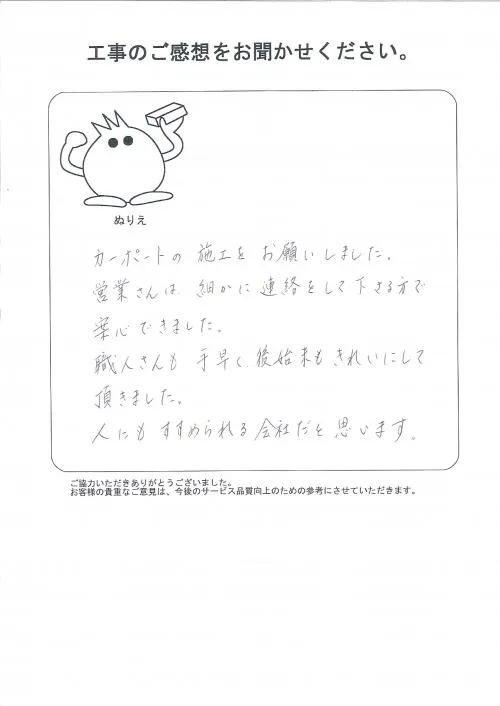 工事のご感想をお聞かせください。
ぬりえ
カーポートの 施工を お願いしました。
営業さんは 細かに 連絡をして下さる方で
安心できました。
職人さんも 手早く 後始末も きれいにして
頂きました。
人にも すすめられる 会社だと 思います。
ご協力いただきありがとうございました。
お客様の貴重なご意見は、今後のサービス品質向上のための参考にさせていただきます。